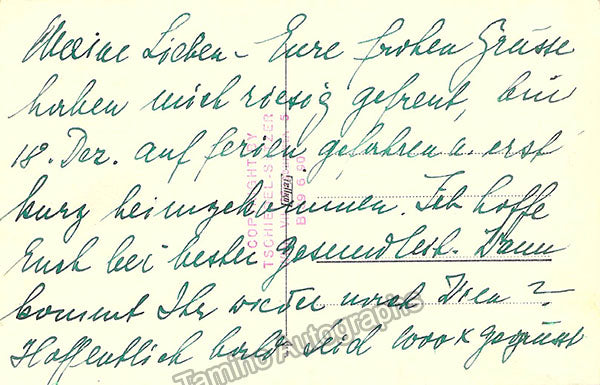 Meine Lieben – Eure frohen Grüsse
haben mich riesig gefreut, bin
18. Dez. auf Ferien gefahren u. erst
kurz heimgekommen. Ich hoffe
Euch bei bester Gesundheit. Wann
kommt Ihr wieder nach Wien?
Hoffentlich bald. Seid 1000 x gegrüsst
COPYRIGHT BY
TSCHIEDEL-SALZER
B 19 6 90
Tamino Autographs